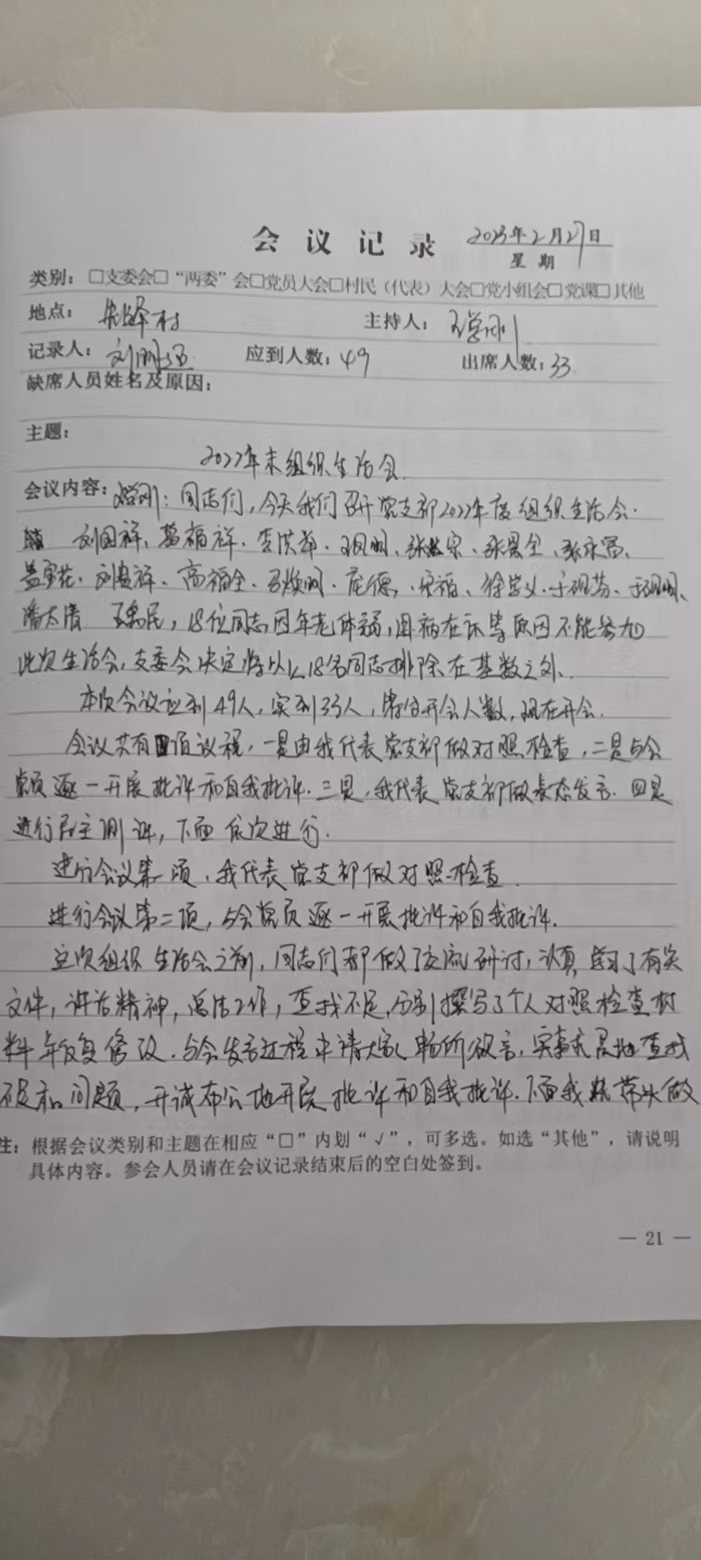 会议记录 2023年2月27日
星期
类别：□支委会□“两委”会□党员大会□村民（代表）大会□党小组会□党课□其他
地点： 村 主持人： 刚
记录人：刘 应到人数：49 出席人数：33
缺席人员姓名及原因：
主题：
2022年末组织生活会
会议内容： 刚：同志们，今天我们召开党支部2022年度组织生活会.
刘国祥、 福祥、李洪 、 明、张 、张 全、张永
花、刘 祥、高福全、 明、 德、 福、徐 义、于 、于 明、
潘 民，18位同志因年老体弱，因病在床等原因不能参加
此次生活会，支委会决定将以上18名同志排除在基数之外、
本次会议应到49人，实到33人，符合开会人数，现在开会.
会议共有四项议程，一是由我代表党支部做对照检查，二是与会
党员逐一开展批评和自我批评.三是，我代表党支部做表态发言.四是
进行民主测评，下面依次进行.
进行会议第一项、我代表党支部做对照检查.
进行会议第二项，与会党员逐一开展批评和自我批评.
这次组织生活会之前，同志们都做了交流研讨，认真学习了有关
文件，讲话精神，总结工作，查找不足，分别撰写了个人对照检查材
料 反复修改.与会发言过程中请大家畅所欲言，实事求是地查找
不足和问题，开诚布公地开展批评和自我批评.下面我先带头做
注：根据会议类别和主题在相应“□”内划“√”，可多选。如选“其他”，请说明
具体内容。参会人员请在会议记录结束后的空白处签到。
— 21 —